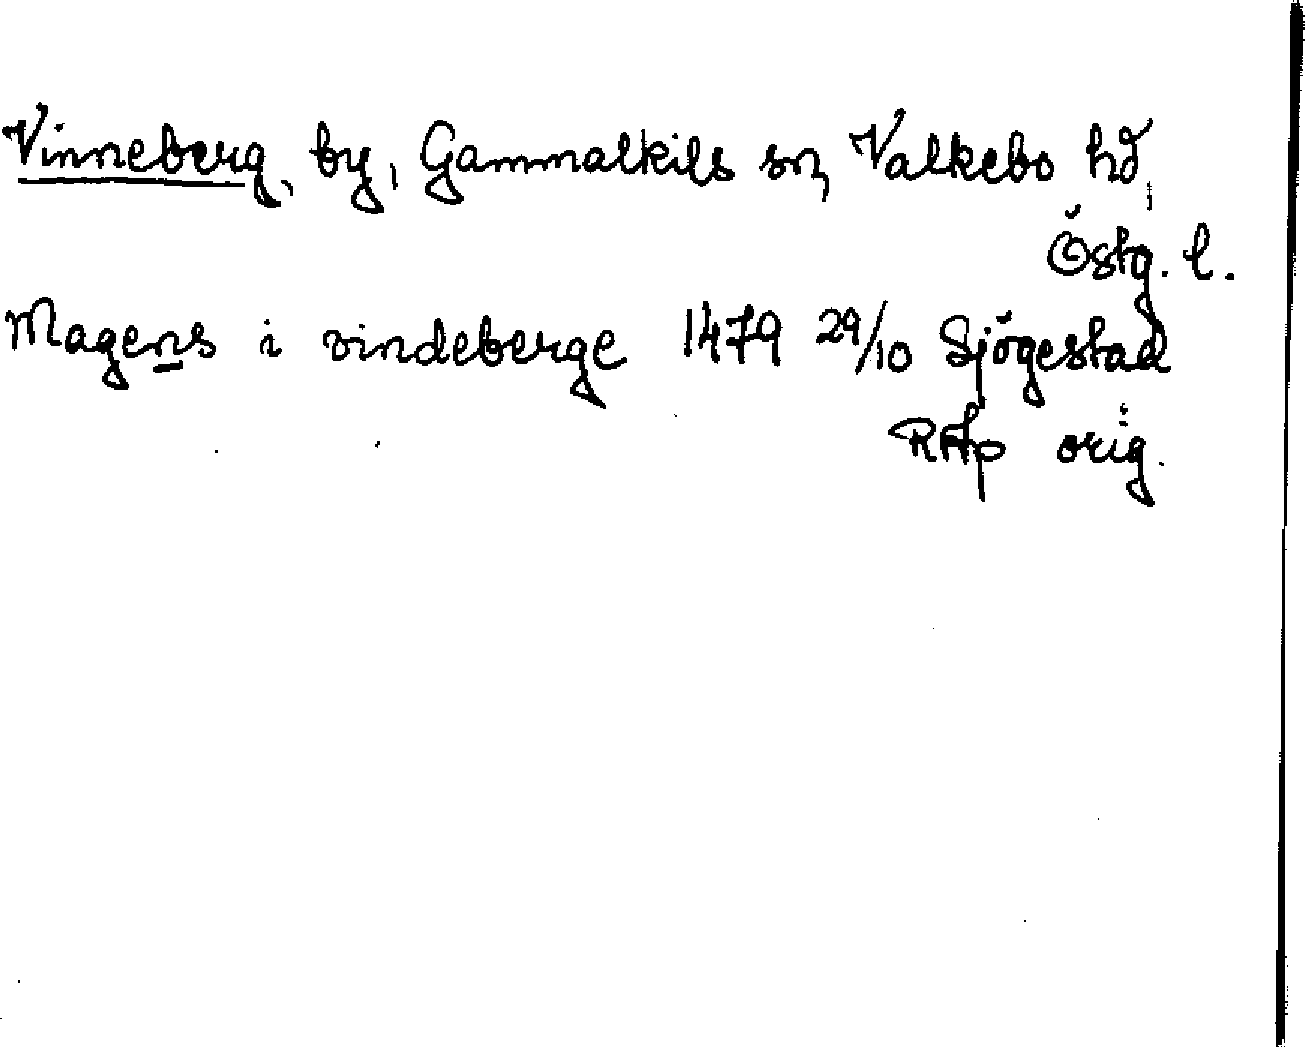 Vinneberg, by, Gammalkils sn, Valkebo hd,
Östg. l.
Magens i vindeberge 1479 29/10 Sjögestad
RAp orig.